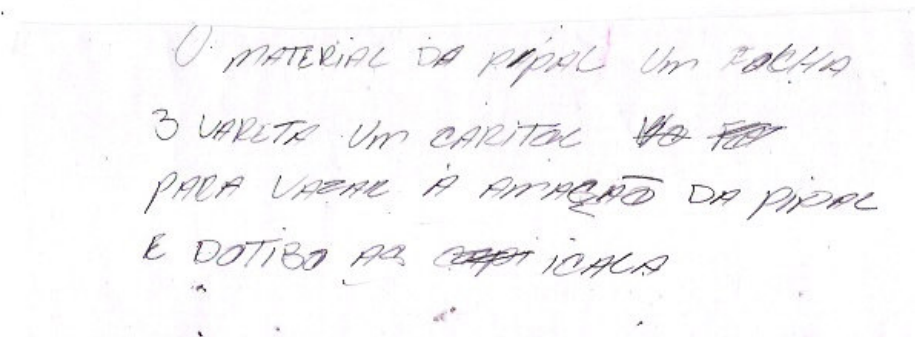 O MATERIAL DA PIPAL UM FOLHA
3 VARETA UM CARITOL
PARA VAZAR A AMAÇÃO DA PIPAL
E DOTIBO AS ICALA